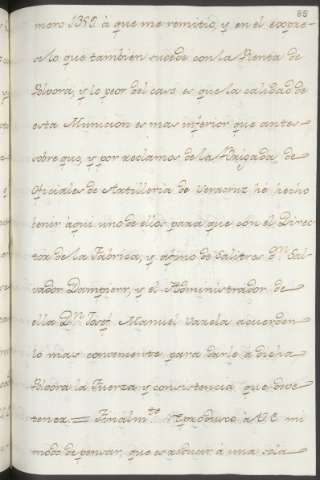 85
mero 1350 à que me remitio, y en el expre-
se lo que tambien sucede con la Renta de
Polvora, y lo peor del caso es que la calidad de
esta Municion es mas inferior que antes
sobre que, y por reclamos de la Brigada de
Oficiales de Artilleria de Veracruz hé hecho
tener aqui uno de ellos para que con el Direc-
tor de la Fabrica, y afino de Salitres Dn. Sal-
vador Dampierr, y el Administrador de
ella Dn. Josef Manuel Varela acuerden
lo mas conveniente para darle à dicha
Polvora la Fuerza y consistencia que deve
tener. = Finalmte. Reproduzco à V.E. mi
modo de pensar, que es reducir à una sola